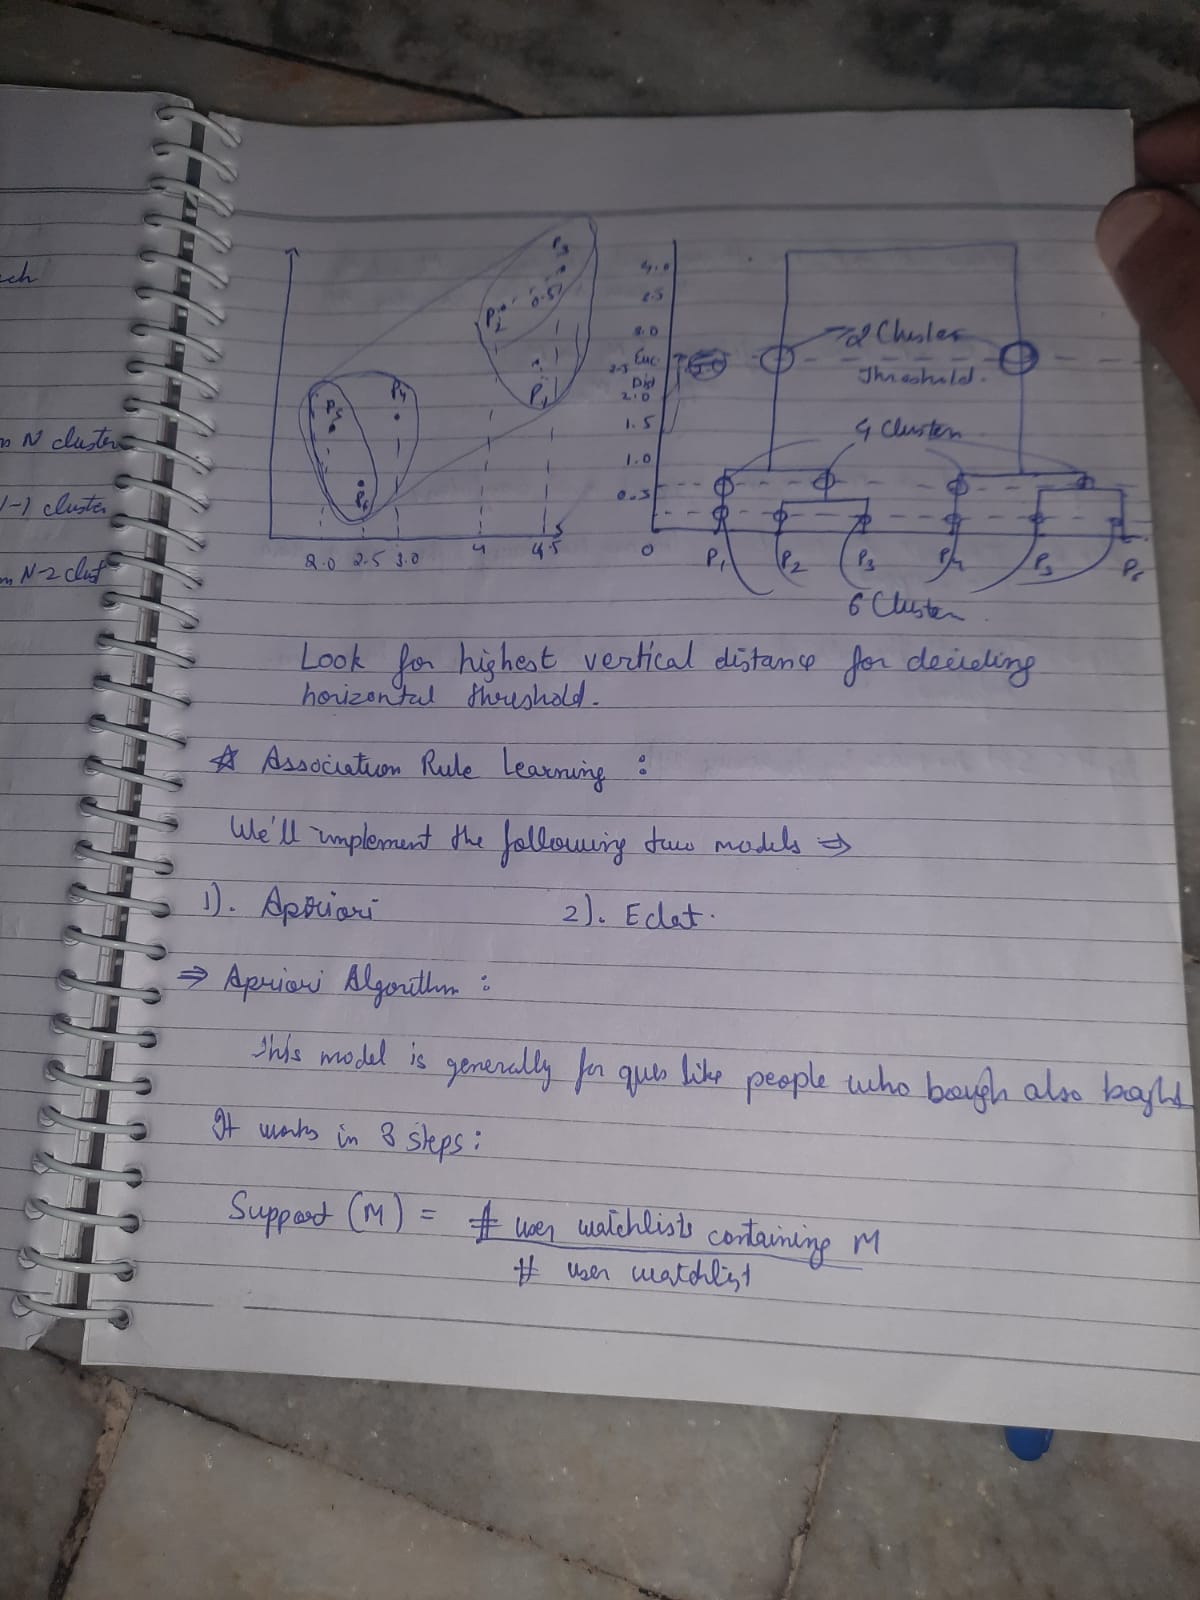 ech
N cluster
-1 cluster
N-2 clust
P3
P2
0.5
P1
P5
P4
P6
2.0 2.5 3.0 4 4.5
4.0
3.0
Euc.
Dist
2.0
1.5
1.0
0
2 Cluster
Threshold.
4 Cluster
P1 P2 P3 P4 P5 P6
6 Cluster
Look for highest vertical distance for deciding
horizontal threshold.
☆ Association Rule Learning :
We'll implement the following two models ⇒
1). Apriori 2). Eclat.
⇒ Apriori Algorithm :
This model is generally for ques like people who bough also boght
It works in 3 steps :
Support (M) = # user watchlists containing M
# user watchlist